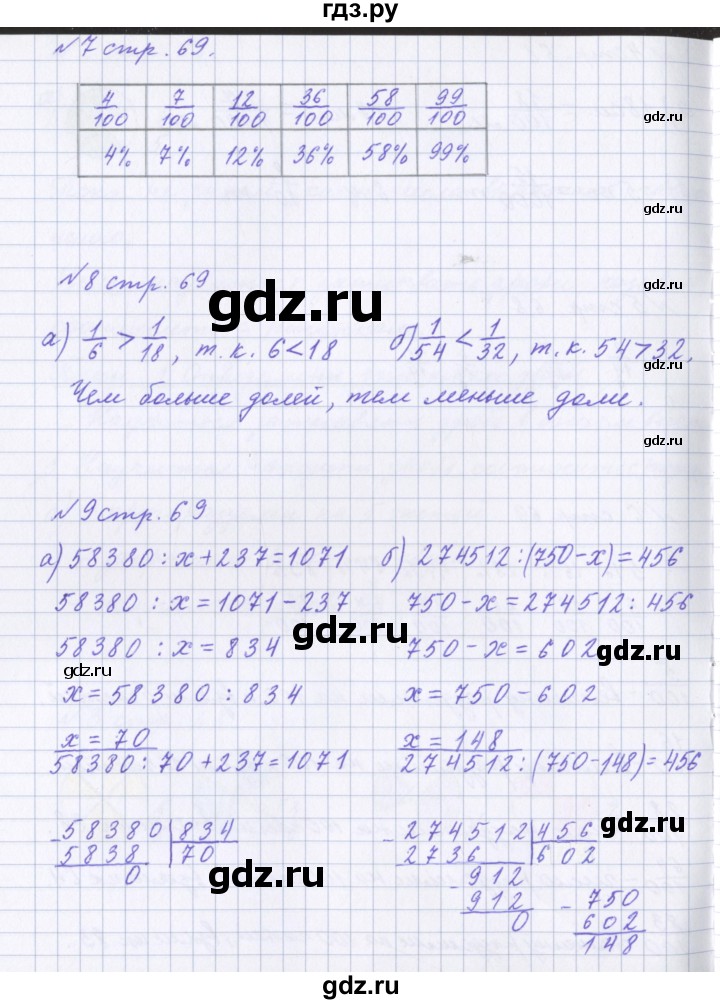 гдз.ру
№7 стр. 69.
4/100 7/100 12/100 36/100 58/100 99/100
gdz.ru
4% 7% 12% 36% 58% 99%
gdz.ru
№8 стр. 69
gdz.ru
gdz.ru
а) 1/6 > 1/18, т. к. 6<18 б) 1/54 < 1/32, т. к. 54>32.
Чем больше долей, тем меньше доли.
gdz.ru
№9 стр. 69
gdz.ru
а) 58380 : x + 237 = 1071 б) 274512 : (750 - x) = 456
58380 : x = 1071 - 237 750 - x = 274512 : 456
gdz.ru
58380 : x = 834 750 - x = 602
gdz.ru
gdz.ru
x = 58380 : 834 x = 750 - 602
x = 70 x = 148
58380 : 70 + 237 = 1071 274512 : (750 - 148) = 456
gdz.ru
- 58380 834 - 274512 456
5838 70 2736 602
0 - 912
912 - 750
0 602
148
gdz.ru
gdz.ru
gdz.ru
gdz.ru